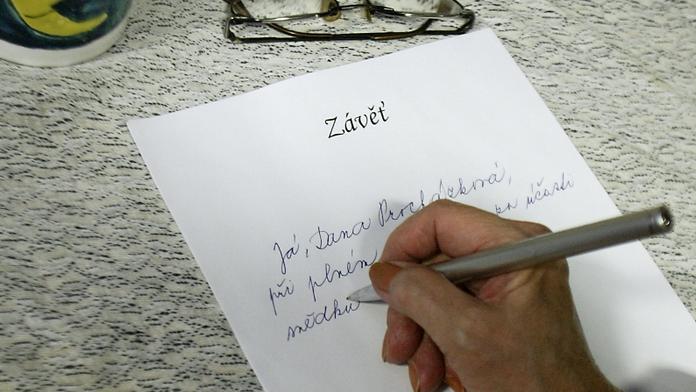 Závěť
Já, Dana Procházková,
při plném za účasti
svědků